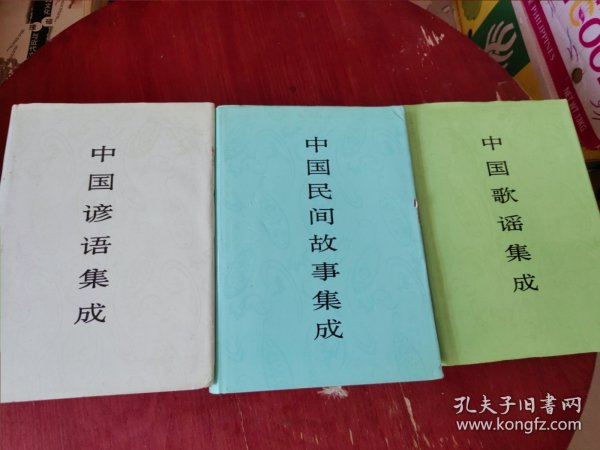 中国谚语集成
中国民间故事集成
中国歌谣集成
PHILIPPINES
孔夫子旧书网
www.kongfz.com